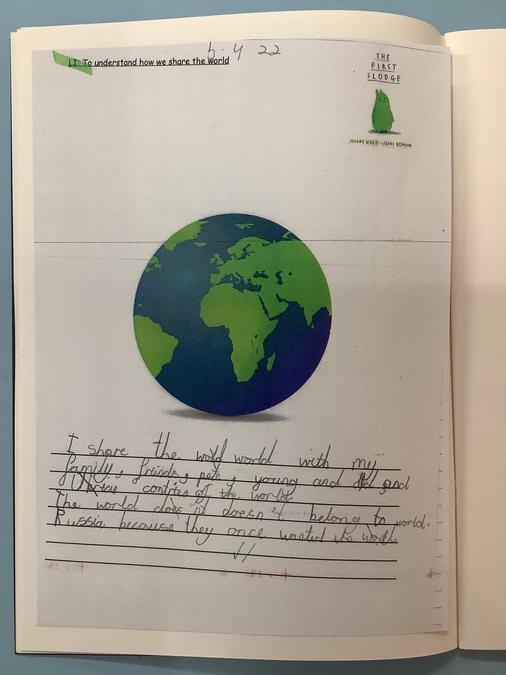 6.4 22
LI: To understand how we share the world
THE
FIRST
SLODGE
I share the world with my
family, friends, pets, young and old and
contries of the world.
The world doesn't belong to world.
Russia because they once wanted the world.